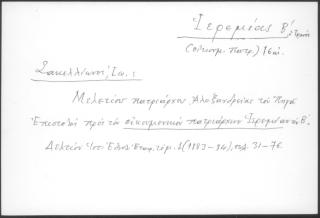 Ἱερεμίας Β΄, ὁ Τρανός
(οἰκουμ. πατρ.) 16 αἰ.
Σακελλίωνος, Ἰω. :
Μελετίου πατριάρχου Ἀλεξανδρείας τοῦ Πηγᾶ
Ἐπιστολαὶ πρὸς τὸν οἰκουμενικὸν πατριάρχην Ἱερεμίαν τὸν Β΄.
Δελτίον Ἱστ. Ἐθνολ. Ἑταιρ. τόμ. 1 (1883-84), σελ. 31-76